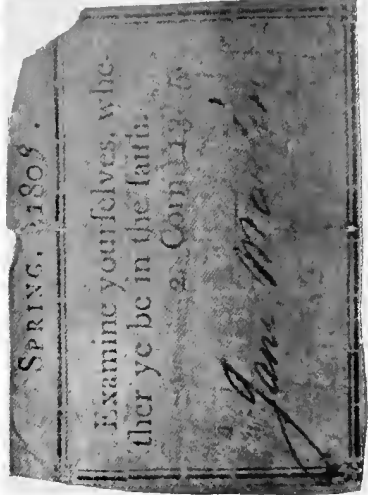 SPRING, 1808.
Examine yourſelves, whe-
ther ye be in the faith.
2 Cor.
Jane